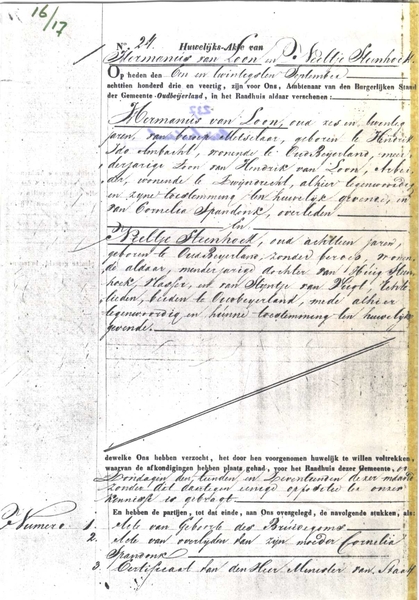 16/17
N.o 24. Huwelijks-Akte van
Hermanus van Loon en Neeltje Steenhoek
Op heden den Een en twintigsten September
achttien honderd drie en veertig, zijn voor Ons, Ambtenaar van den Burgerlijken Stand
der Gemeente Oudbeijerland, in het Raadhuis aldaar verschenen:
Hermanus van Loon, oud zes en twintig
jaren, van beroep Metselaar, geboren te Hendrik
Ido Ambacht, wonende te Oud Beijerland, meer
derjarige Zoon van Hendrik van Loon, Arbei
der, wonende te Zwijndrecht, alhier tegenwoordig
en zijne toestemming ten huwelijk gevende, en
van Cornelia Spandonk, overleden
En
Neeltje Steenhoek, oud achttien jaren,
geboren te Oud Beijerland, zonder beroep, wonen
de aldaar, minderjarige dochter van Huig Steen
hoek, en van Lijntje van Vugt, Echte
lieden, beiden te Oudbeijerland, mede alhier
tegenwoordig en hunne toestemming ten huwelijk
gevende.
dewelke Ons hebben verzocht, het door hen voorgenomen huwelijk te willen voltrekken,
waarvan de afkondigingen hebben plaats gehad, voor het Raadhuis dezer Gemeente, op
Zondagen den tienden en Zeventienden dezer maand
zonder dat daartegen eenige oppositie te onzer
kennisse is gebragt
En hebben de partijen, tot dat einde, aan Ons overgelegd, de navolgende stukken, als:
Numero 1. Acte van Geboorte des Bruidegoms
2. Acte van overlijden van zijn moeder Cornelia
Spandonk
3. Certificaat van den Heer Minister van Staat